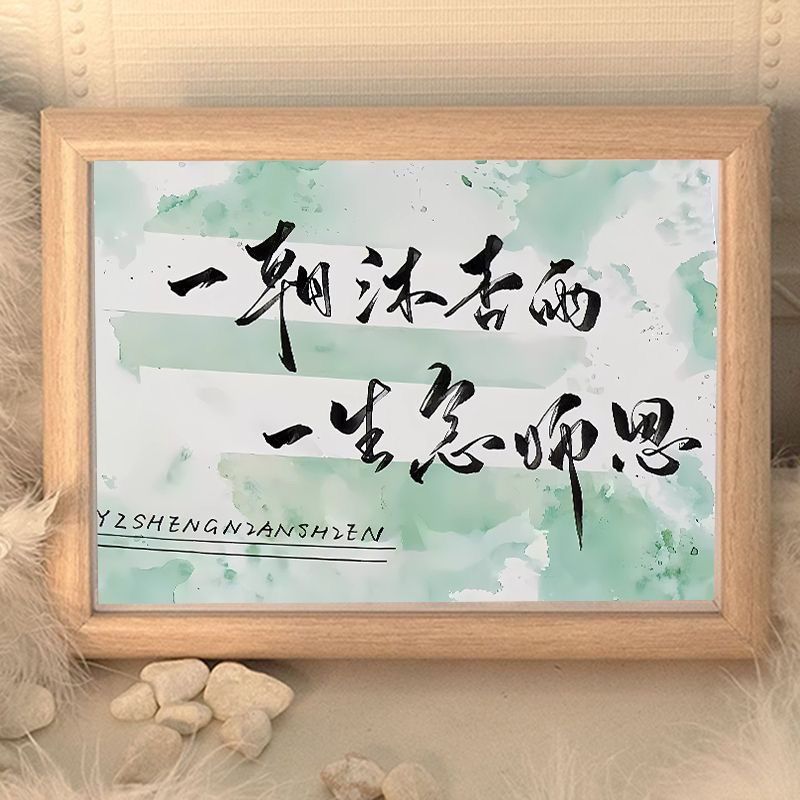 一朝沐杏雨
一生念师恩
YISHENGNIANSHIEN